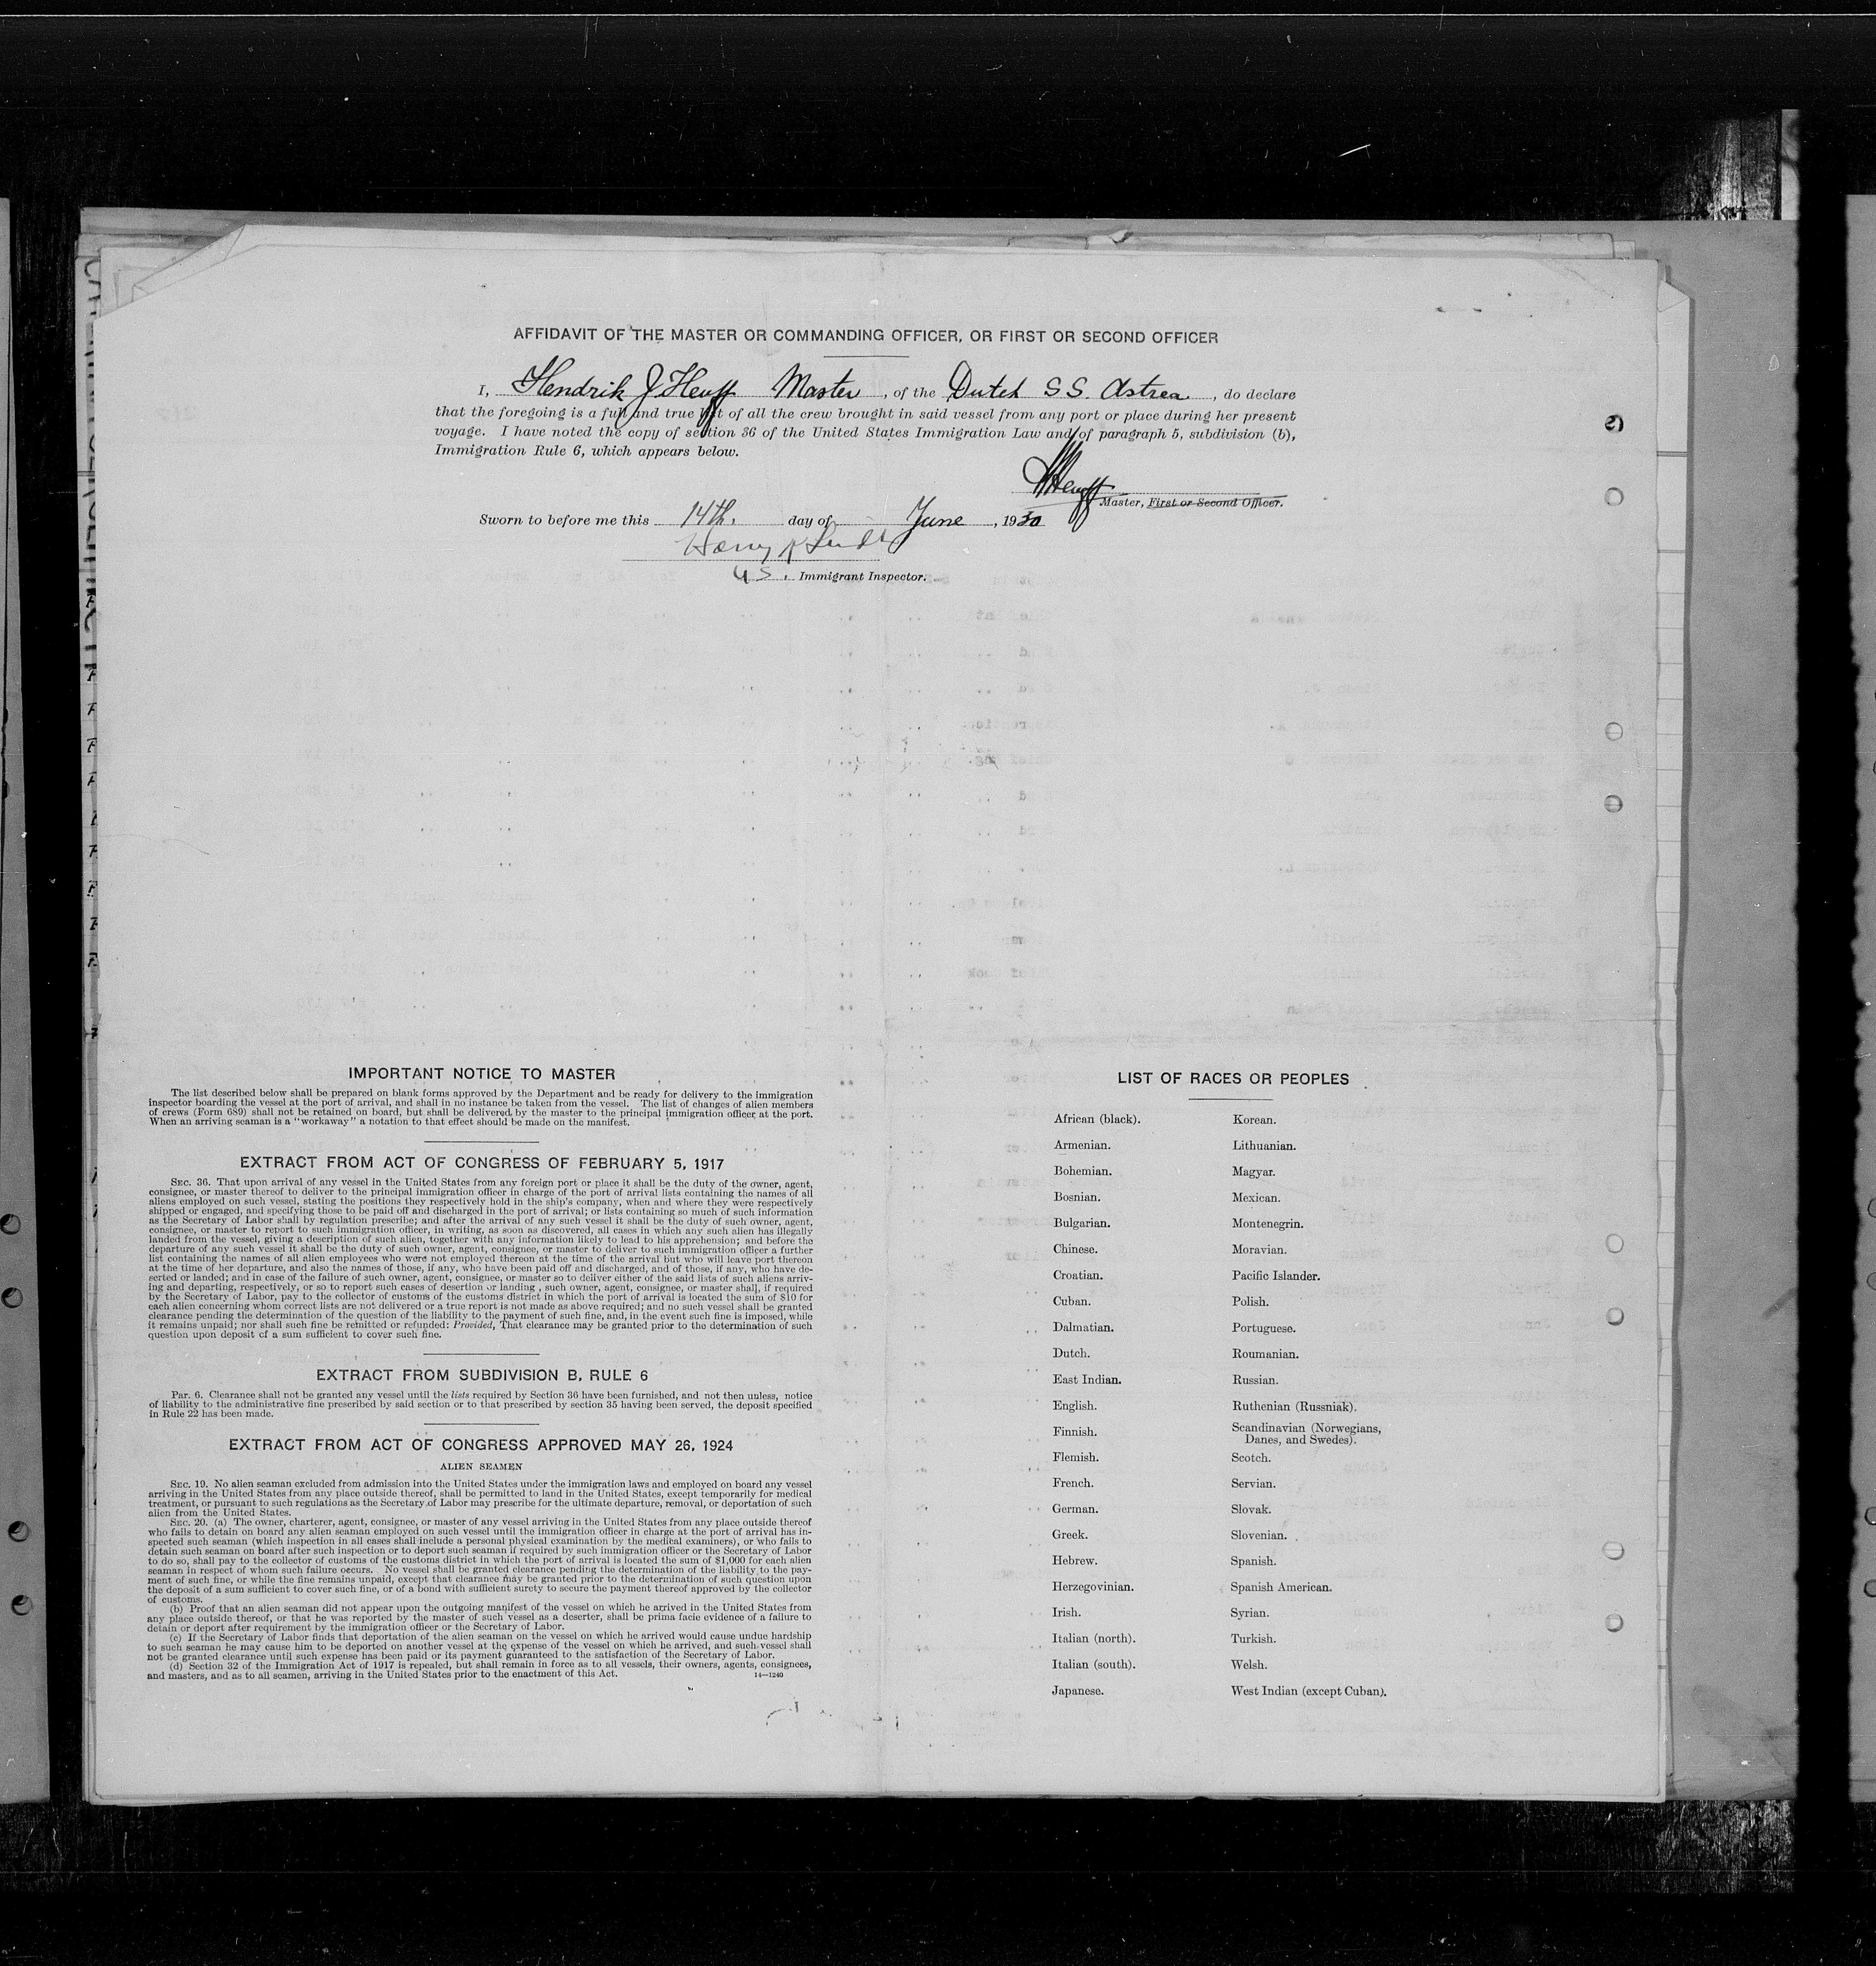 AFFIDAVIT OF THE MASTER OR COMMANDING OFFICER, OR FIRST OR SECOND OFFICER
I, Hendrik J Heuff Master, of the Dutch S S. Astrea, do declare
that the foregoing is a full and true list of all the crew brought in said vessel from any port or place during her present
voyage. I have noted the copy of section 36 of the United States Immigration Law and of paragraph 5, subdivision (b),
Immigration Rule 6, which appears below.
HHeuff
Master, First or Second Officer.
Sworn to before me this 14th. day of June, 1930
Harry
U S. Immigrant Inspector.
IMPORTANT NOTICE TO MASTER
The list described below shall be prepared on blank forms approved by the Department and be ready for delivery to the immigration
inspector boarding the vessel at the port of arrival, and shall in no instance be taken from the vessel. The list of changes of alien members
of crews (Form 689) shall not be retained on board, but shall be delivered by the master to the principal immigration officer at the port.
When an arriving seaman is a "workaway" a notation to that effect should be made on the manifest.
EXTRACT FROM ACT OF CONGRESS OF FEBRUARY 5, 1917
SEC. 36. That upon arrival of any vessel in the United States from any foreign port or place it shall be the duty of the owner, agent,
consignee, or master thereof to deliver to the principal immigration officer in charge of the port of arrival lists containing the names of all
aliens employed on such vessel, stating the positions they respectively hold in the ship's company, when and where they were respectively
shipped or engaged, and specifying those to be paid off and discharged in the port of arrival; or lists containing so much of such information
as the Secretary of Labor shall by regulation prescribe; and after the arrival of any such vessel it shall be the duty of such owner, agent,
consignee, or master to report to such immigration officer, in writing, as soon as discovered, all cases in which any such alien has illegally
landed from the vessel, giving a description of such alien, together with any information likely to lead to his apprehension; and before the
departure of any such vessel it shall be the duty of such owner, agent, consignee, or master to deliver to such immigration officer a further
list containing the names of all alien employees who were not employed thereon at the time of the arrival but who will leave port thereon
at the time of her departure, and also the names of those, if any, who have been paid off and discharged, and of those, if any, who have de-
serted or landed; and in case of the failure of such owner, agent, consignee, or master so to deliver either of the said lists of such aliens arriv-
ing and departing, respectively, or so to report such cases of desertion or landing, such owner, agent, consignee, or master shall, if required
by the Secretary of Labor, pay to the collector of customs of the customs district in which the port of arrival is located the sum of $10 for
each alien concerning whom correct lists are not delivered or a true report is not made as above required; and no such vessel shall be granted
clearance pending the determination of the question of the liability to the payment of such fine, and, in the event such fine is imposed, while
it remains unpaid; nor shall such fine be remitted or refunded: Provided, That clearance may be granted prior to the determination of such
question upon deposit of a sum sufficient to cover such fine.
EXTRACT FROM SUBDIVISION B, RULE 6
PAR. 6. Clearance shall not be granted any vessel until the lists required by Section 36 have been furnished, and not then unless, notice
of liability to the administrative fine prescribed by said section or to that prescribed by section 35 having been served, the deposit specified
in Rule 22 has been made.
EXTRACT FROM ACT OF CONGRESS APPROVED MAY 26, 1924
ALIEN SEAMEN
SEC. 19. No alien seaman excluded from admission into the United States under the immigration laws and employed on board any vessel
arriving in the United States from any place outside thereof, shall be permitted to land in the United States, except temporarily for medical
treatment, or pursuant to such regulations as the Secretary of Labor may prescribe for the ultimate departure, removal, or deportation of such
alien from the United States.
SEC. 20. (a) The owner, charterer, agent, consignee, or master of any vessel arriving in the United States from any place outside thereof
who fails to detain on board any alien seaman employed on such vessel until the immigration officer in charge at the port of arrival has in-
spected such seaman (which inspection in all cases shall include a personal physical examination by the medical examiners), or who fails to
detain such seaman on board after such inspection or to deport such seaman if required by such immigration officer or the Secretary of Labor
to do so, shall pay to the collector of customs of the customs district in which the port of arrival is located the sum of $1,000 for each alien
seaman in respect of whom such failure occurs. No vessel shall be granted clearance pending the determination of the liability to the pay-
ment of such fine, or while the fine remains unpaid, except that clearance may be granted prior to the determination of such question upon
the deposit of a sum sufficient to cover such fine, or of a bond with sufficient surety to secure the payment thereof approved by the collector
of customs.
(b) Proof that an alien seaman did not appear upon the outgoing manifest of the vessel on which he arrived in the United States from
any place outside thereof, or that he was reported by the master of such vessel as a deserter, shall be prima facie evidence of a failure to
detain or deport after requirement by the immigration officer or the Secretary of Labor.
(c) If the Secretary of Labor finds that deportation of the alien seaman on the vessel on which he arrived would cause undue hardship
to such seaman he may cause him to be deported on another vessel at the expense of the vessel on which he arrived, and such vessel shall
not be granted clearance until such expense has been paid or its payment guaranteed to the satisfaction of the Secretary of Labor.
(d) Section 32 of the Immigration Act of 1917 is repealed, but shall remain in force as to all vessels, their owners, agents, consignees,
and masters, and as to all seamen, arriving in the United States prior to the enactment of this Act.
14—1240
LIST OF RACES OR PEOPLES
African (black).
Armenian.
Bohemian.
Bosnian.
Bulgarian.
Chinese.
Croatian.
Cuban.
Dalmatian.
Dutch.
East Indian.
English.
Finnish.
Flemish.
French.
German.
Greek.
Hebrew.
Herzegovinian.
Irish.
Italian (north).
Italian (south).
Japanese.
Korean.
Lithuanian.
Magyar.
Mexican.
Montenegrin.
Moravian.
Pacific Islander.
Polish.
Portuguese.
Roumanian.
Russian.
Ruthenian (Russniak).
Scandinavian (Norwegians,
Danes, and Swedes).
Scotch.
Servian.
Slovak.
Slovenian.
Spanish.
Spanish American.
Syrian.
Turkish.
Welsh.
West Indian (except Cuban).